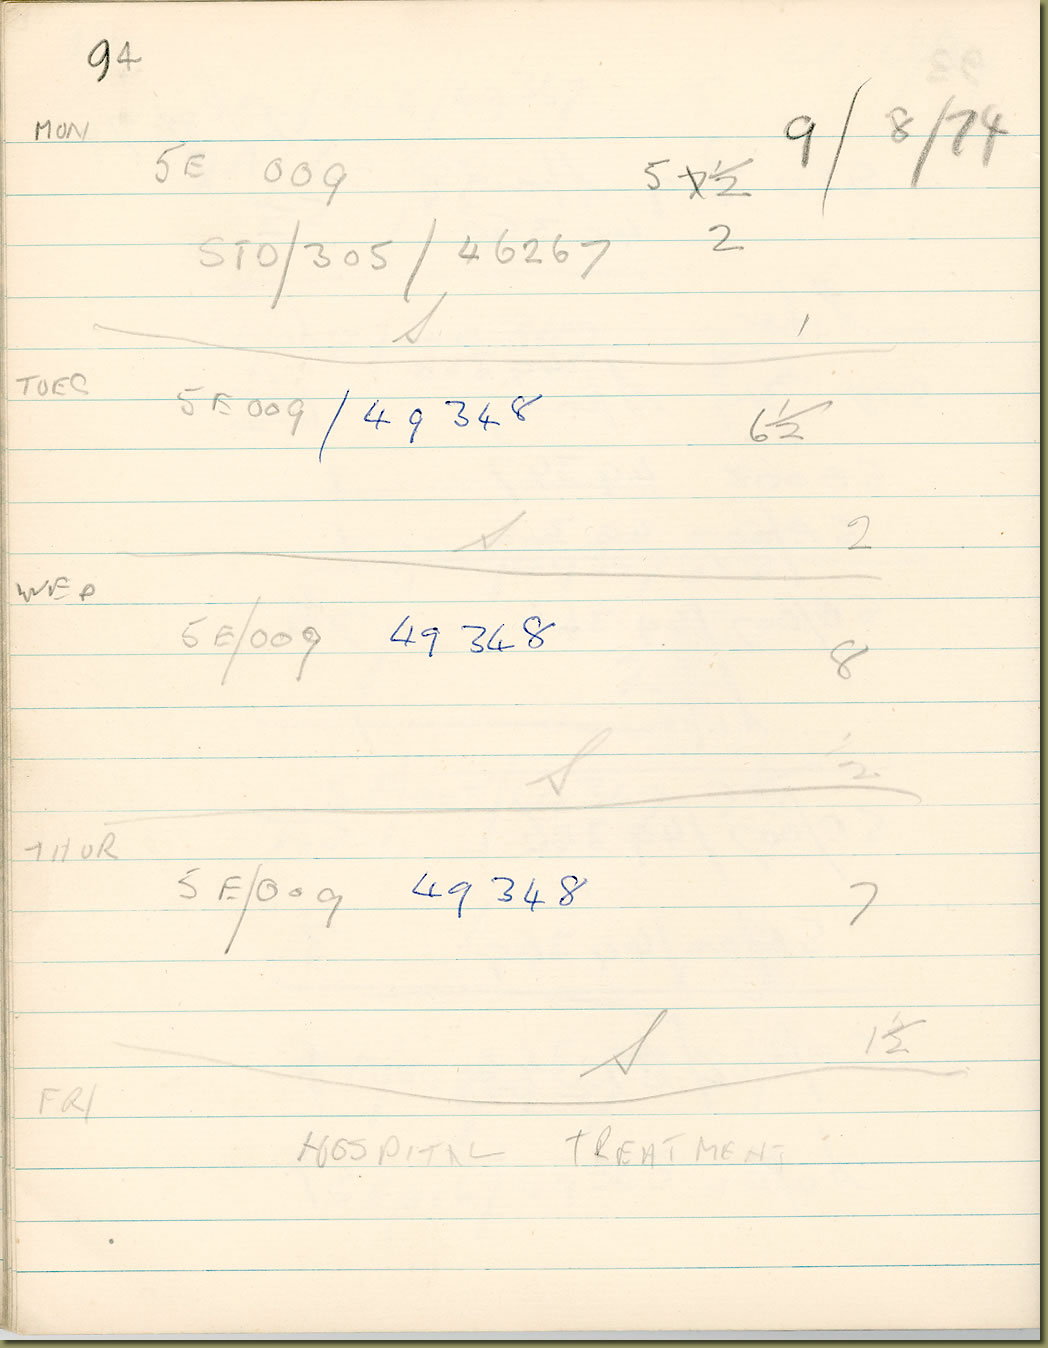 94
MON 9/8/74
5E 009 5 ½
STD/305/46267 2
S 1
TUES 5E009/49348 6½
S 2
WED
5E/009 49348 8
S ½
THUR
5E/009 49348 7
S 1½
FRI
HOSPITAL TREATMENT